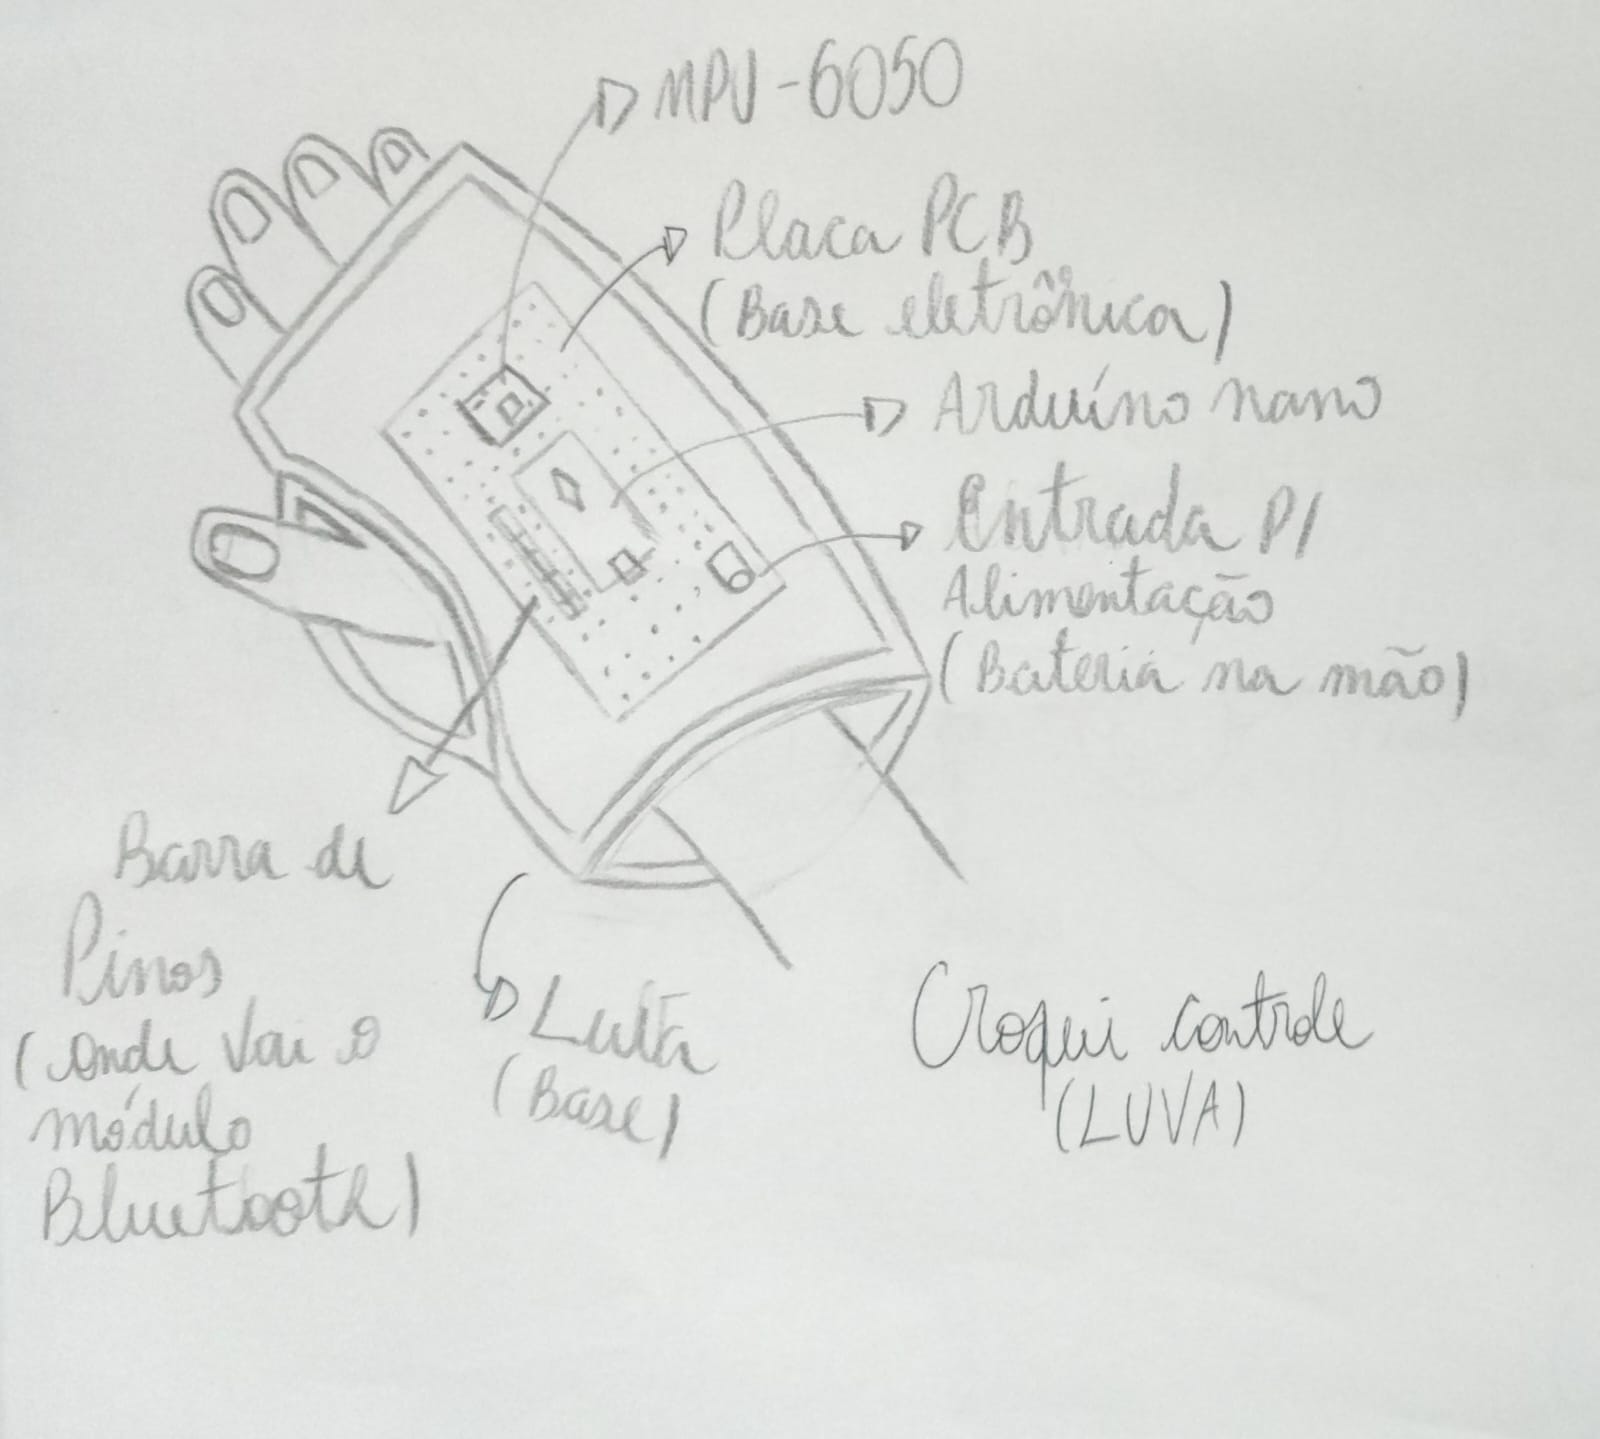 MPU-6050
Placa PCB
(Base eletrônica)
Arduíno nano
Entrada P/
Alimentação
(Bateria na mão)
Barra de
Pinos
(onde vai o
módulo
Bluetooth)
Luva
(Base)
Croqui controle
(LUVA)